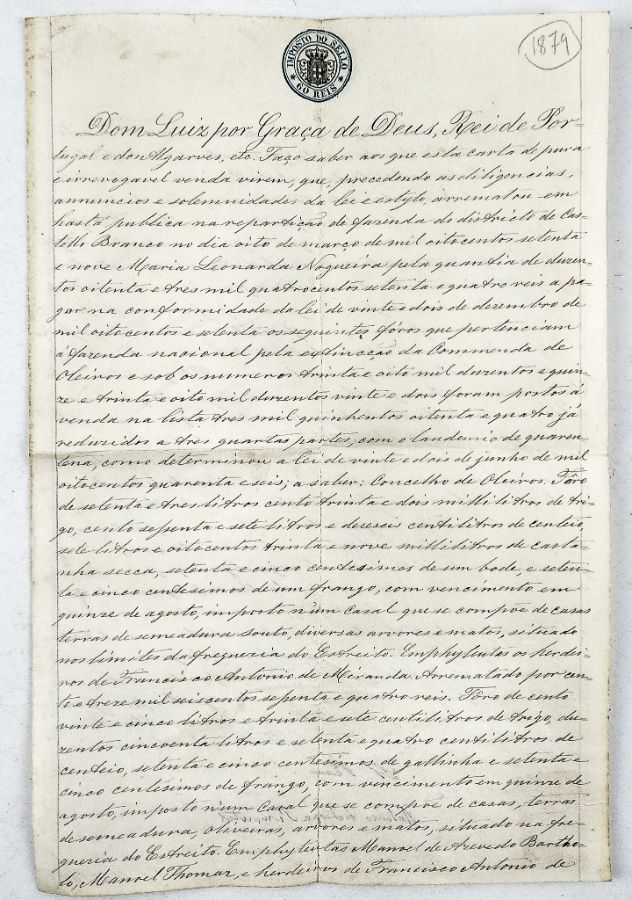 1879
IMPOSTO DO SELLO
60 REIS
Dom Luiz por Graça de Deus, Rei de Por-
tugal e dos Algarves, etc. Faço saber aos que esta carta de pura
e irrevogavel venda virem, que, precedendo as diligencias,
annuncios e solemnidades da lei e estylo, arrematou em
hasta publica na repartição de fazenda do districto de Cas-
tello Branco no dia oito de março de mil oitocentos setenta
e nove Maria Leonarda Nogueira pela quantia de duzen-
tos oitenta e tres mil quatrocentos setenta e quatro reis a pa-
gar na conformidade da lei de vinte e dois de dezembro de
mil oitocentos e setenta os seguintes fóros que pertenciam
á fazenda nacional pela extincção da Commenda de
Oleiros e sob os numeros trinta e oito mil duzentos e quin-
ze e trinta e oito mil duzentos vinte e dois foram postos á
venda na lista tres mil quinhentos oitenta e quatro já
reduzidos a tres quartas partes, com o laudemio de quaren-
tena, como determinou a lei de vinte e dois de junho de mil
oitocentos quarenta e seis; a saber: Concelho de Oleiros. Fôro
de setenta e tres litros cento trinta e dois millilitros de tri-
go, cento sessenta e sete litros e dezeseis centilitros de centeio,
sete litros e oitocentos trinta e nove millilitros de casta-
nha secca, setenta e cinco centesimos de um bode, e seten-
ta e cinco centesimos de um frango, com vencimento em
quinze de agosto, imposto n'um casal que se compõe de casas
terras de semeadura souto, diversas arvores e matos, situado
nos limites da freguezia do Estreito. Emphyteutas os herdei-
ros de Francisco Antonio de Miranda Arrematado por cen-
to e treze mil seiscentos sessenta e quatro reis. Fôro de cento
vinte e cinco litros e trinta e sete centilitros de trigo, du-
zentos cincoenta litros e setenta e quatro centilitros de
centeio, setenta e cinco centesimos de gallinha e setenta e
cinco centesimos de frango, com vencimento em quinze de
agosto, imposto n'um casal que se compõe de casas, terras
de semeadura, oliveiras, arvores e matos, situado na fre-
guezia do Estreito. Emphyteutas Manoel de Azevedo Bartho-
lo, Manoel Thomaz, e herdeiros de Francisco Antonio de